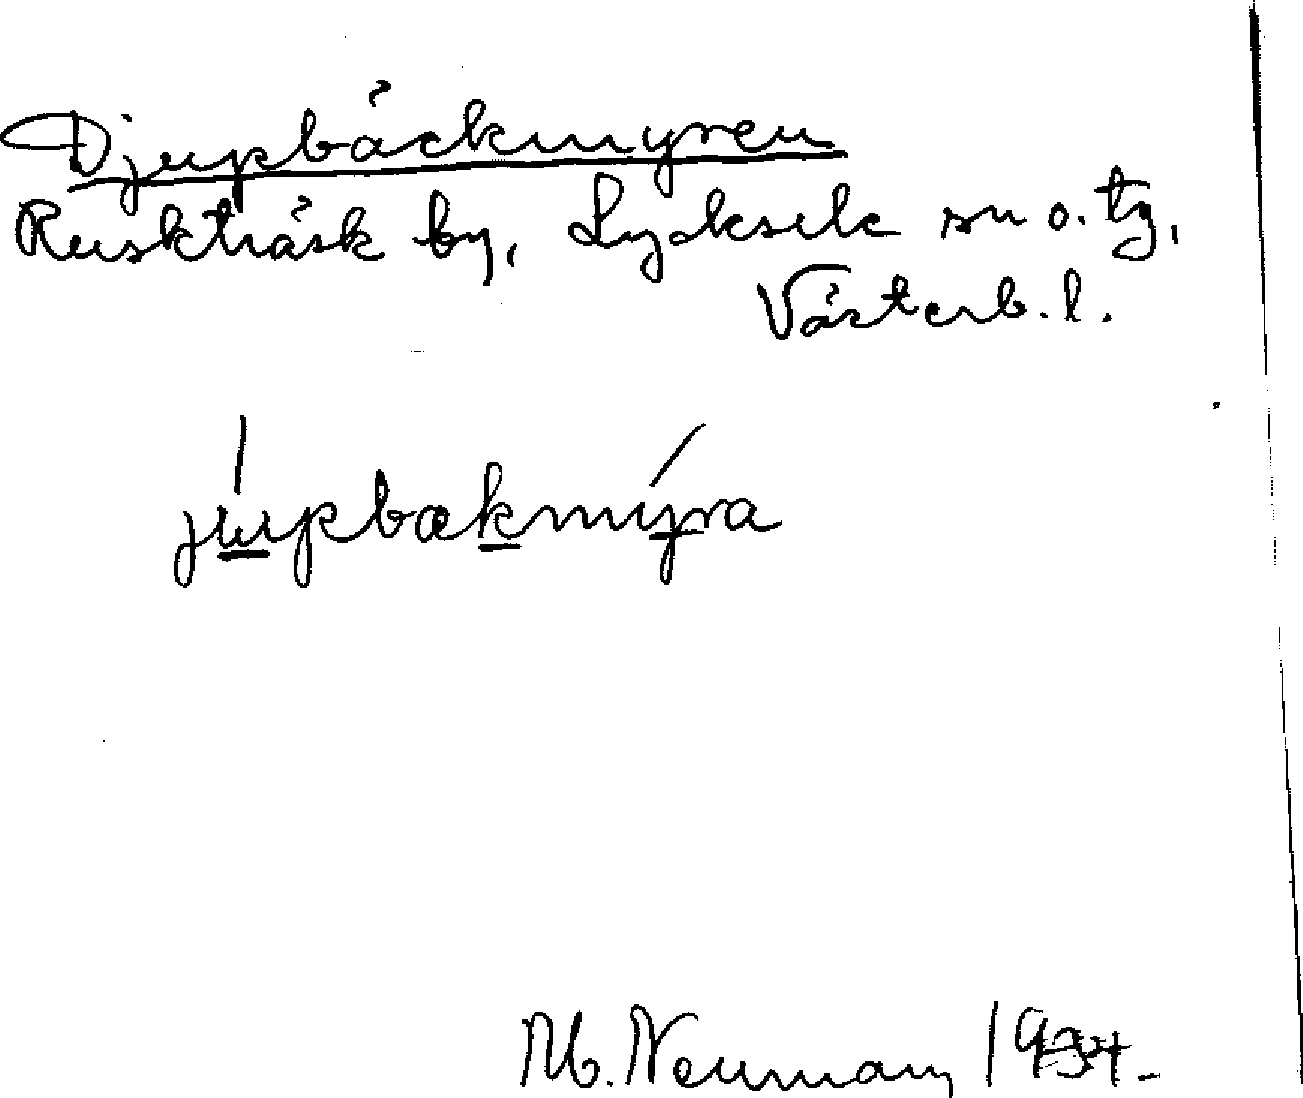 Djupbäckmyren
Ruskträsk by, Lycksele sn o. tg,
Västerb. l.
júupbækmýra
M. Neuman, 1934.